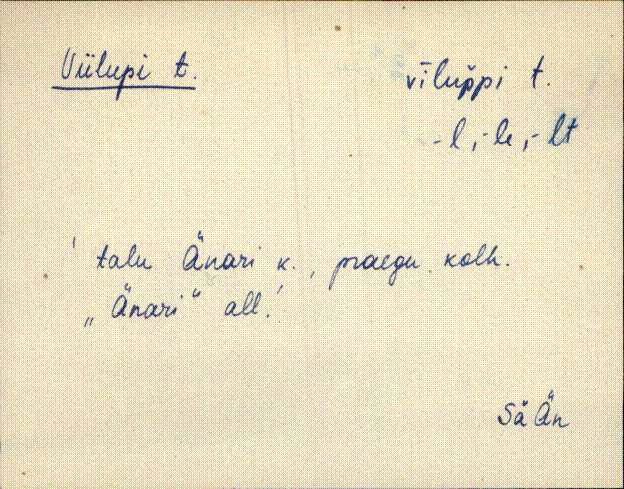 Viilupi t.
vīlup̆pi t.
-l, -le, -lt
' talu Änari k., praegu kolh.
„Änari“ all.'
Sä Än